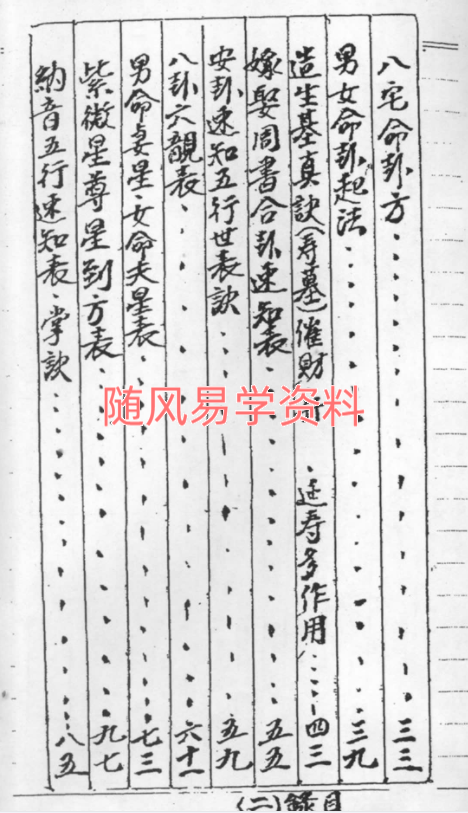 八宅命卦方..................三三
男女命卦起法..................三九
造生基真訣(寿墓)催財 .延寿多作用......四三
嫁娶周書合卦速知表..................五五
安卦速知五行世表訣..................五九
八卦六親表..................六十一
男命妻星、女命夫星表..................七三
紫微星尊星到方表..................九七
納音五行速知表、掌訣..................八五
目錄(二)
随风易学资料